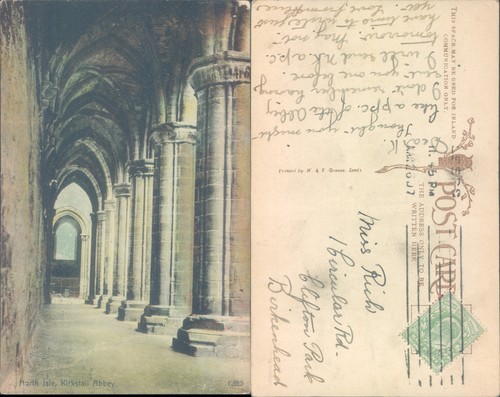 North Isle, Kirkstall Abbey.
THIS SPACE MAY BE USED FOR INLAND
COMMUNICATION ONLY.
Dear K.
Thought you might
like a p.p.c. of the Abbey
I don't remember having
sent you one before.
I will send Nk a p.c.
tomorrow. May not
have time to write just
yet. Love from
Printed by W. & T. Gaines, Leeds
LEEDS
POST CARD
THE ADDRESS ONLY TO BE
WRITTEN HERE.
Miss Rich
1 Circular Rd.
Clifton Park
Birkenhead